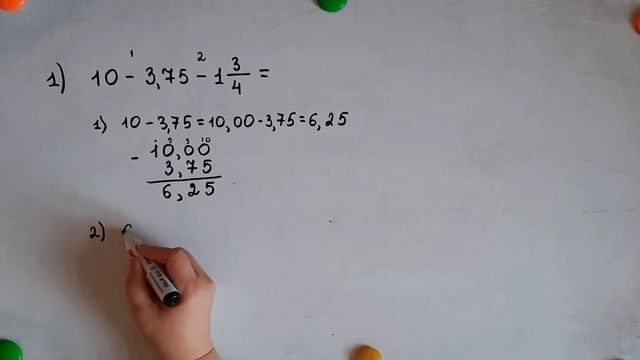 1 2
1) 10 - 3,75 - 1 3/4 =
1) 10 - 3,75 = 10,00 - 3,75 = 6,25
- 10,00
3,75
6,25
2)